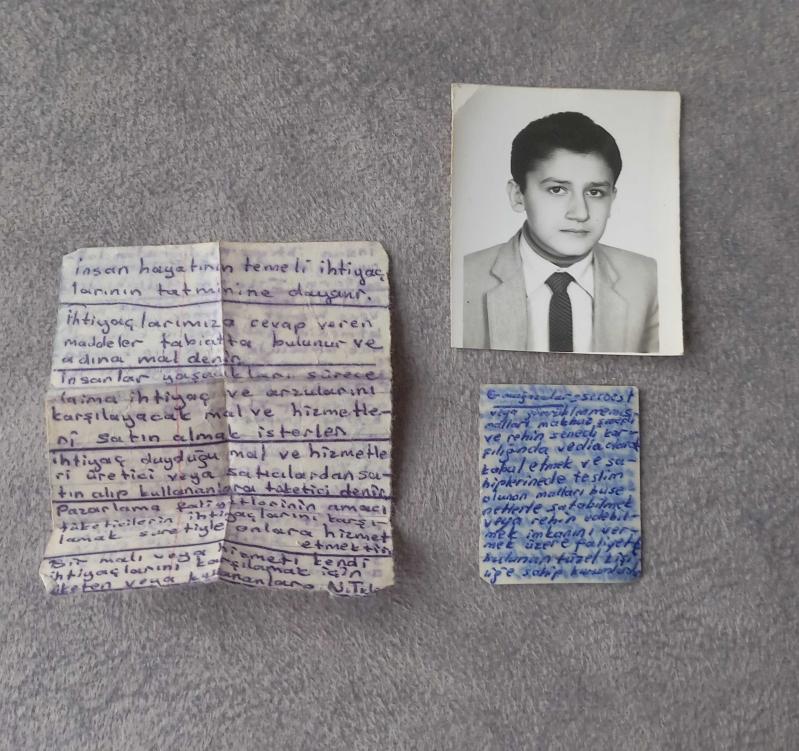 İnsan hayatının temeli ihtiyaç
larının tatminine dayanır.
ihtiyaçlarımıza cevap veren
maddeler tabiatta bulunur ve
adına mal denir
İnsanlar yaşadıkları sürece
daima ihtiyaç ve arzularını
karşılayacak mal ve hizmetle-
ri satın almak isterler
ihtiyaç duyduğu mal ve hizmetle
ri üretici veya satıcılardan sa-
tın alıp kullananlara tüketici denir
Pazarlama faliyetlerinin amacı
tüketicilerin ihtiyaçlarını karşı-
lamak suretiyle onlara hizmet
etmektir
Bir malı veya hizmeti kendi
ihtiyaçlarını karşılamak için
tüketen veya kullananlara
serbest
veya
malları makbuz senedi
ve rehin senedi kar-
şılığında vedia olarak
kabul etmek ve sa
hiplerinede teslim
olunan malları bu se
netlerle satabilmek
veya rehin edebil-
mek imkanını ver-
mek üzere faliyette
bulunan tüzel kişi
liğe sahip